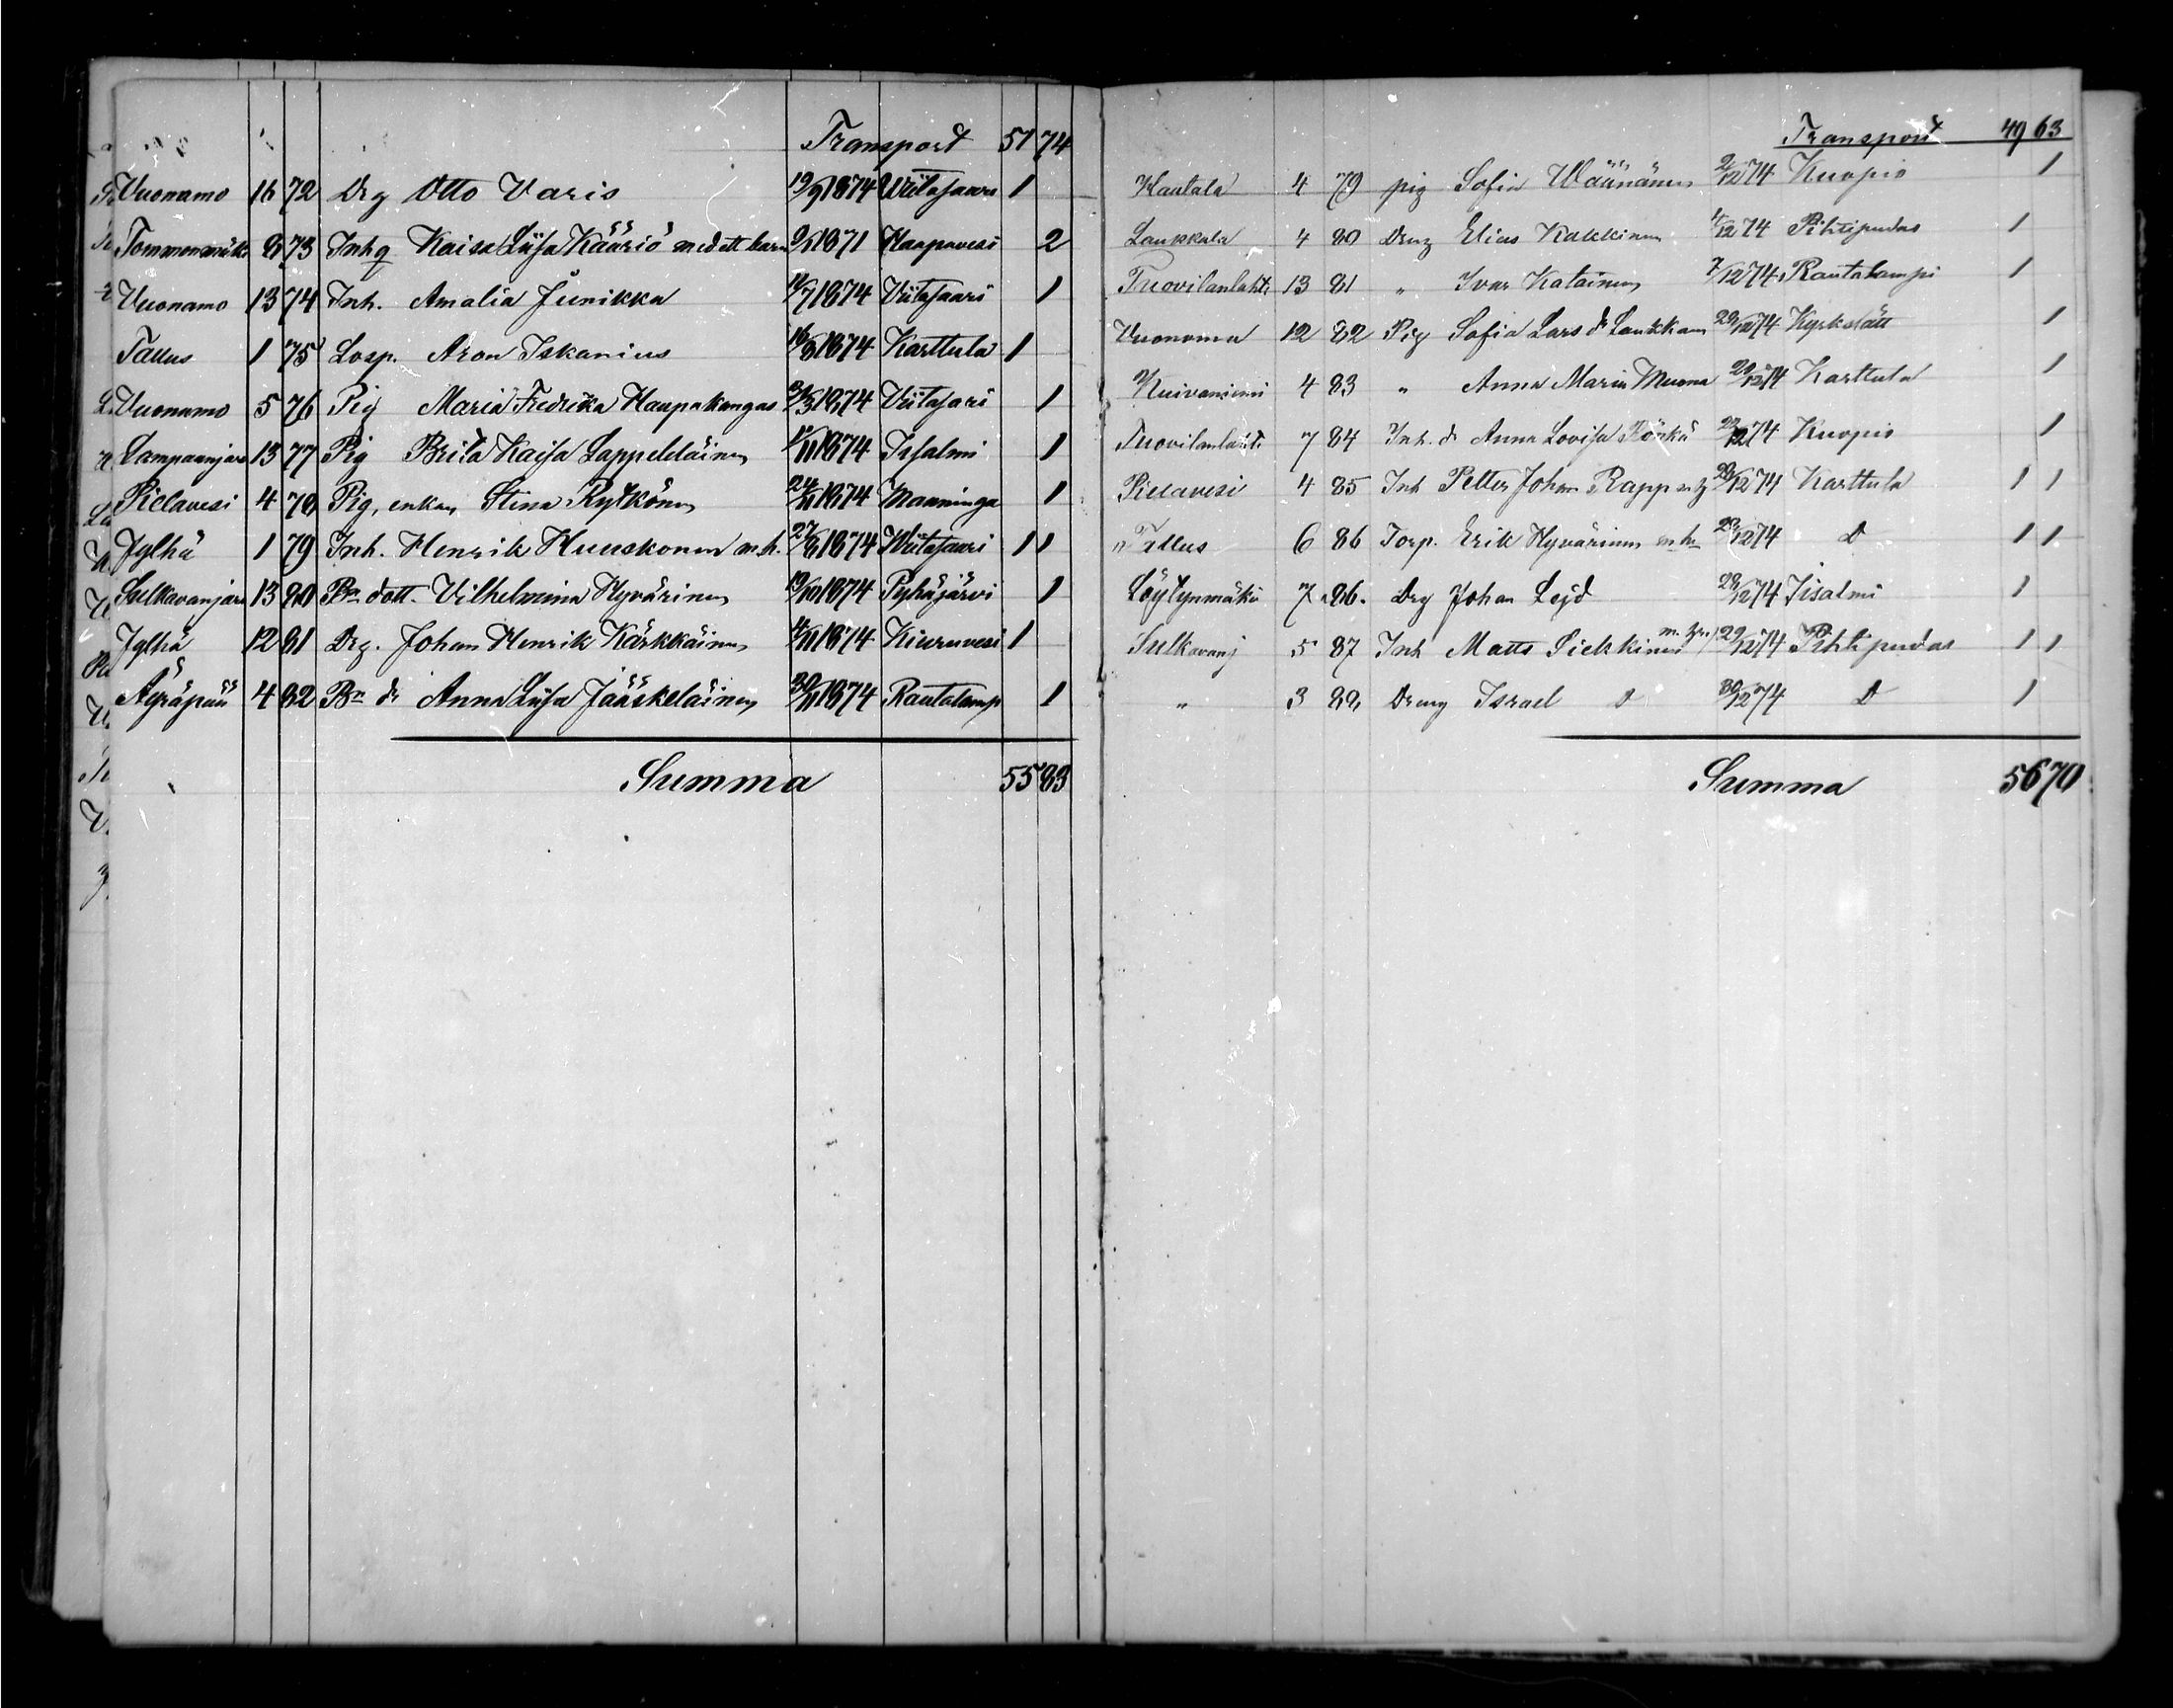 Transport 51 74
Vuonamo 16 72 Drg Otto Varis 19/9 1874 Viitasaari 1
Tommonmäki 8 73 Inhq Kaisa Liisa Kääriö med ett barn 1871 Haapavesi 2
Vuonamo 13 74 Inh. Amalia Junikka 1874 Viitasaari 1
Tallus 1 75 Losp. Aron Iskanius 1874 Karttula 1
Vuonamo 5 76 Pig Maria Fredrika Haapakangas 1874 Viitasari 1
Lampaanjärv 13 77 Pig Brita Kaisa Lappeteläinen 1874 Isalmi 1
Pielavesi 4 78 Pig, enkan Stina Rytkönen 1874 Maaninga 1
Jylhä 1 79 Inh. Henrik Huuskonen m.h. 1874 Wiitasaari 1 1
Sulkavanjärv 13 80 Bn dott. Vilhelmina Hyvärinen 19/10 1874 Pyhäjärvi 1
Jylhä 12 81 Drg. Johan Henrik Kärkkäinen 1874 Kiuruvesi 1
Äyräpää 4 82 Bn dr Anna Liisa Jääskeläinen 1874 Rautalamp 1
Summa 55 83
Transport 49 63
Kantala 4 79 pig Sofia Wäänänen 2/12 74 Kuopio 1
Laukkala 4 80 Dreng Elias Kakkinen 4/12 74 Pihtipudas 1
Tuovilanlahti 13 81 " Ivar Katainen 7/12 74 Rautalampi 1
Vuonoma 12 82 Pig Sofia Lars dr Laukkan 74 Kyrkslätt 1
Kuivaniemi 4 83 " Anna Maria Muona 74 Karttula 1
Tuovilanlahti 7 84 Inh. dr Anna Lovisa Rönkä 74 Kuopio 1
Pielavesi 4 85 Inh Petter Johan Rapp 74 Karttula 1 1
Tallus 6 86 Torp. Erik Hyvärinen m h 74 D 1 1
Löytynmäki 7 86. Drg Johan Lejd 74 Iisalmi 1
Sulkavanj 5 87 Inh Matts Siekkinen 29/12 74 Pihtipudas 1 1
" 3 88 Dreng Israel D 30/12 74 D 1
Summa 56 70